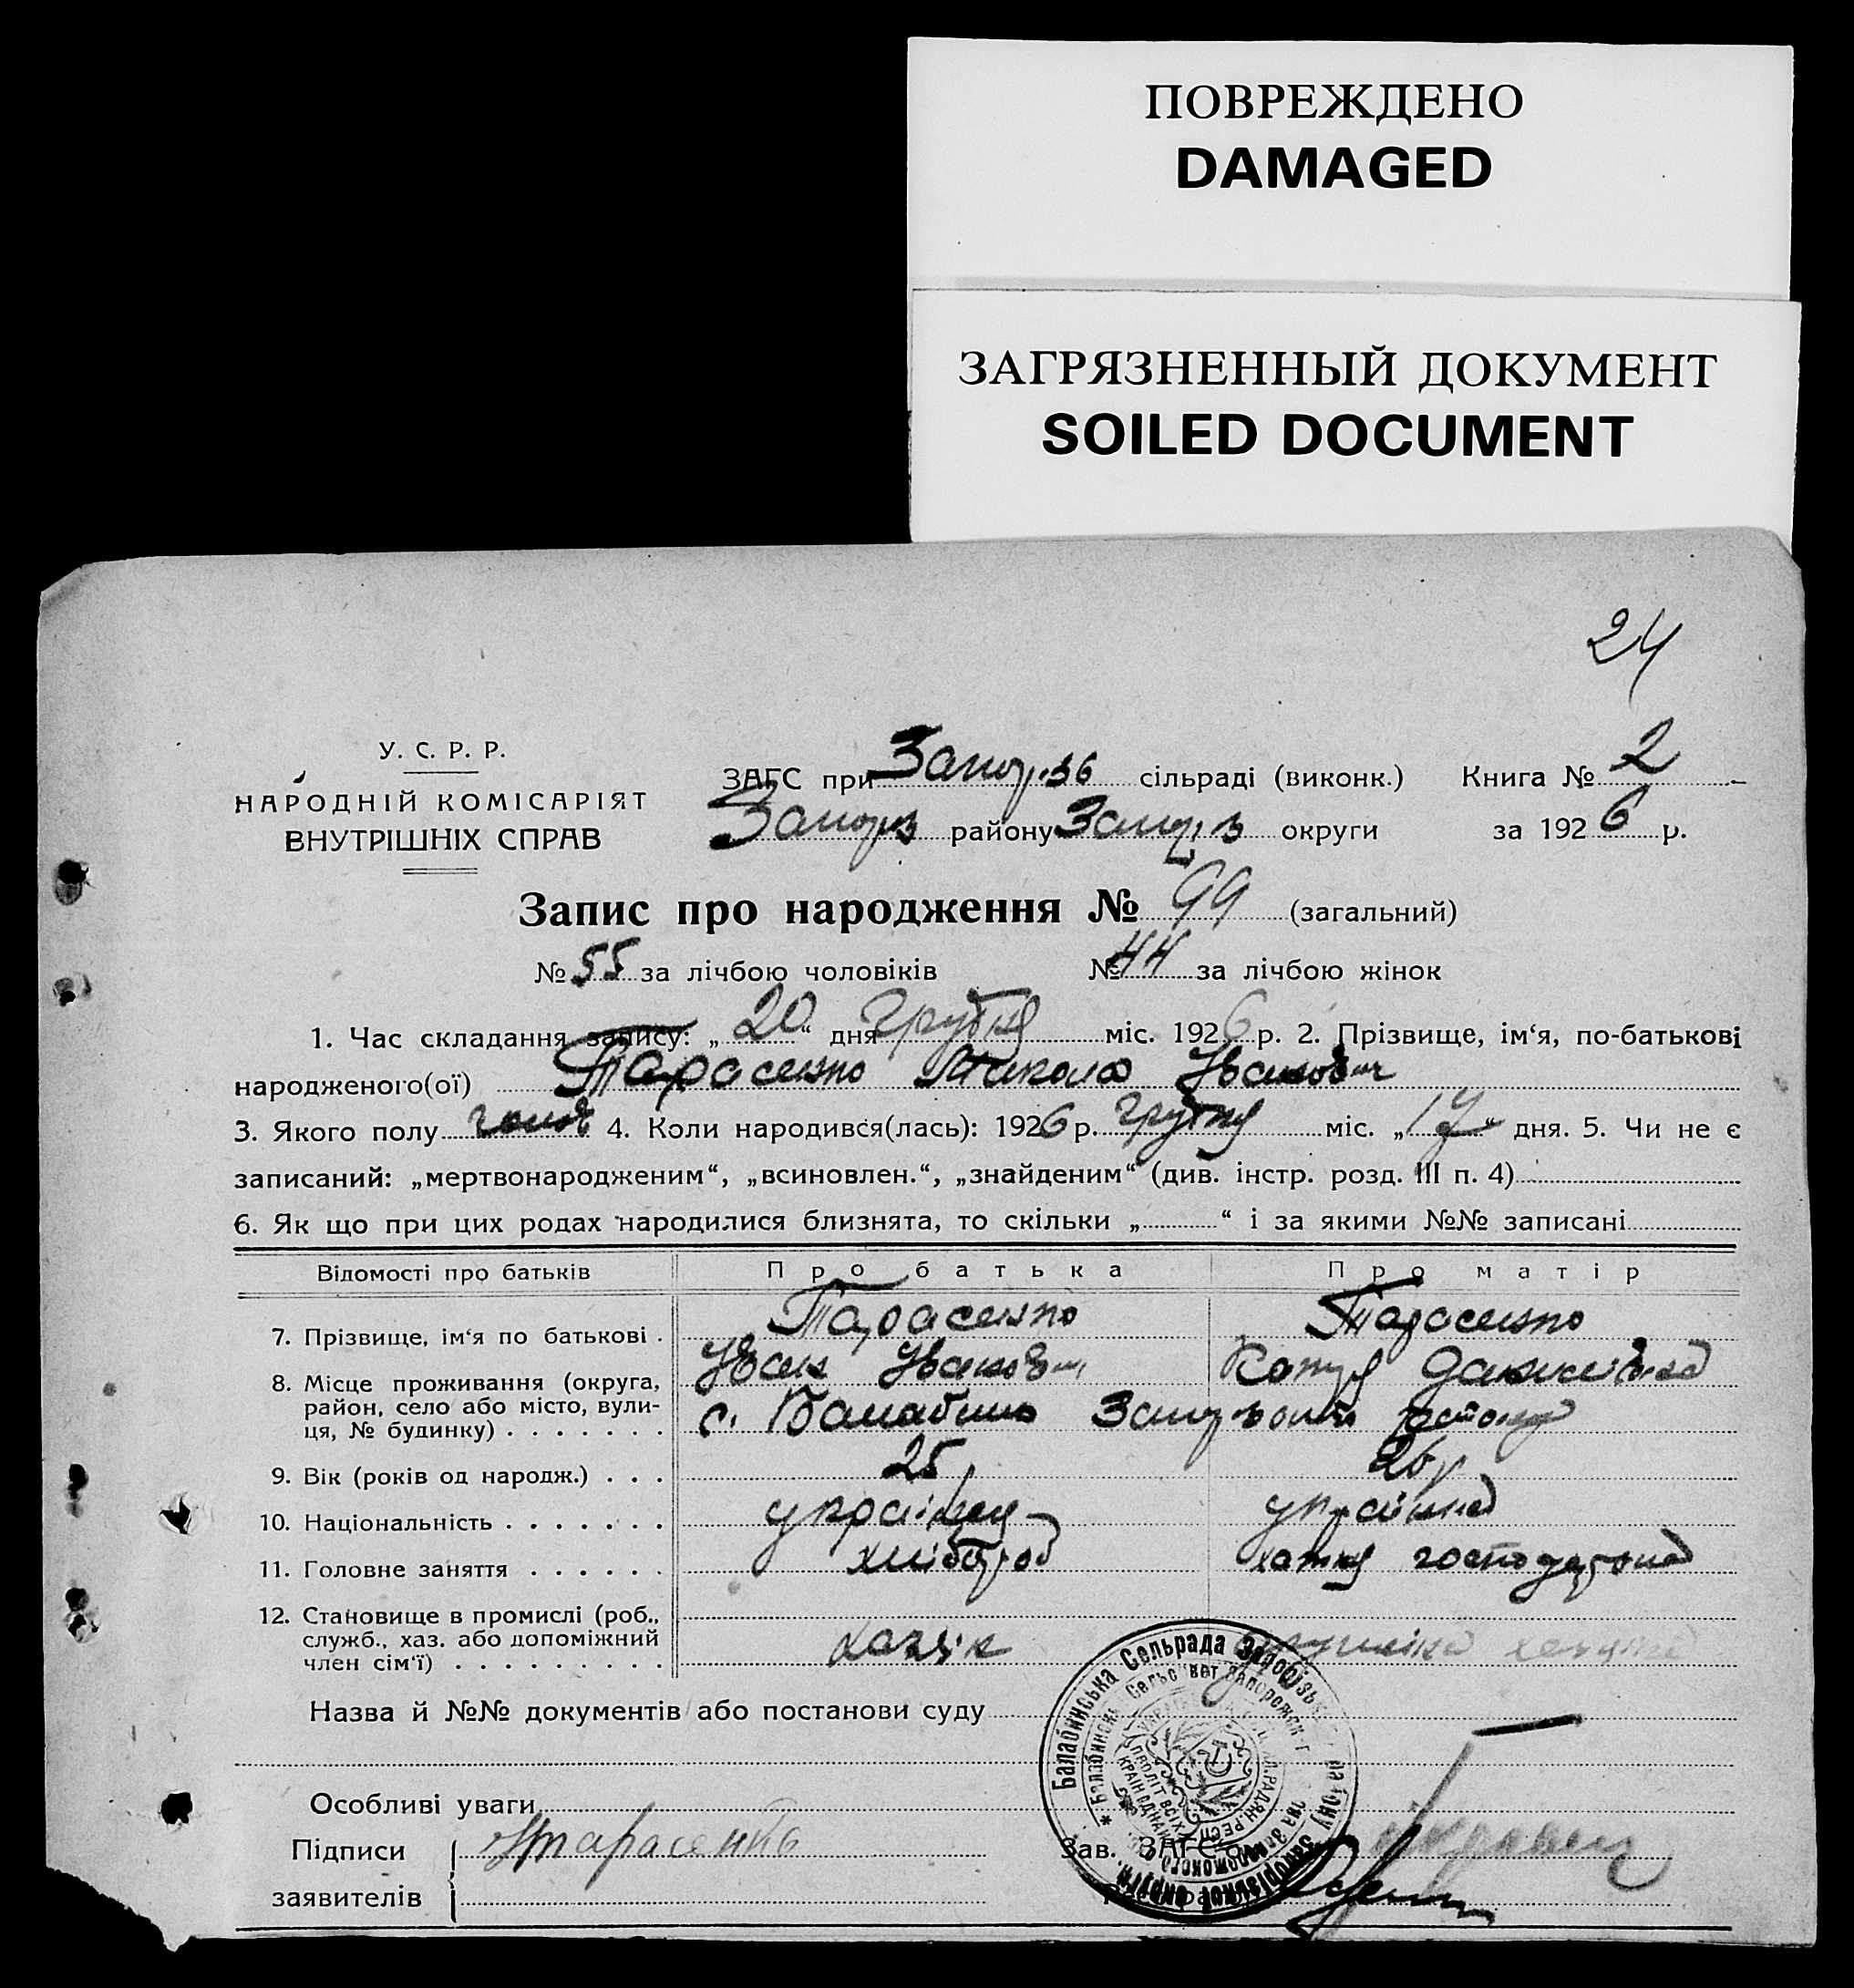 ПОВРЕЖДЕНО
DAMAGED
ЗАГРЯЗНЕННЫЙ ДОКУМЕНТ
SOILED DOCUMENT
24
У. С. Р. Р.
НАРОДНІЙ КОМІСАРІЯТ
ВНУТРІШНІХ СПРАВ
ЗАГС при сільраді (виконк.) Книга № 2
Запоріз району Запоріз округи за 1926 р.
Запис про народження № 99 (загальний)
№ 55 за лічбою чоловіків № 44 за лічбою жінок
1. Час складання запису: „20“ дня Грудня міс. 1926 р. 2. Прізвище, ім‘я, по-батькові
народженого(ої) Тарасенко Микола Іванович
3. Якого полу чолов 4. Коли народився(лась): 1926 р. Грудня міс. „17“ дня. 5. Чи не є
записаний: „мертвонародженим“, „всиновлен.“, „знайденим“ (див. інстр. розд. III п. 4)
6. Як що при цих родах народилися близнята, то скільки „ “ і за якими №№ записані
Відомості про батьків Про батька Про матір
7. Прізвище, ім‘я по батькові . Тарасенко Іван Іванович Тарасенко
8. Місце проживання (округа, район, село або місто, вулиця, № будинку) . . . . . . . с. Балабино
9. Вік (років од народж.) . . . 25 р 26 р
10. Національність . . . . . . . українець українка
11. Головне заняття . . . . . . хлібороб хатня господарка
12. Становище в промислі (роб., служб., хаз. або допоміжний член сім‘ї) . . . . . . . . . хазяїн
Назва й №№ документів або постанови суду
Особливі уваги
Підписи заявителів Тарасенко
Зав. ЗАГС‘ом
Балабинська Сельрада Запорізького району Запорізької округи